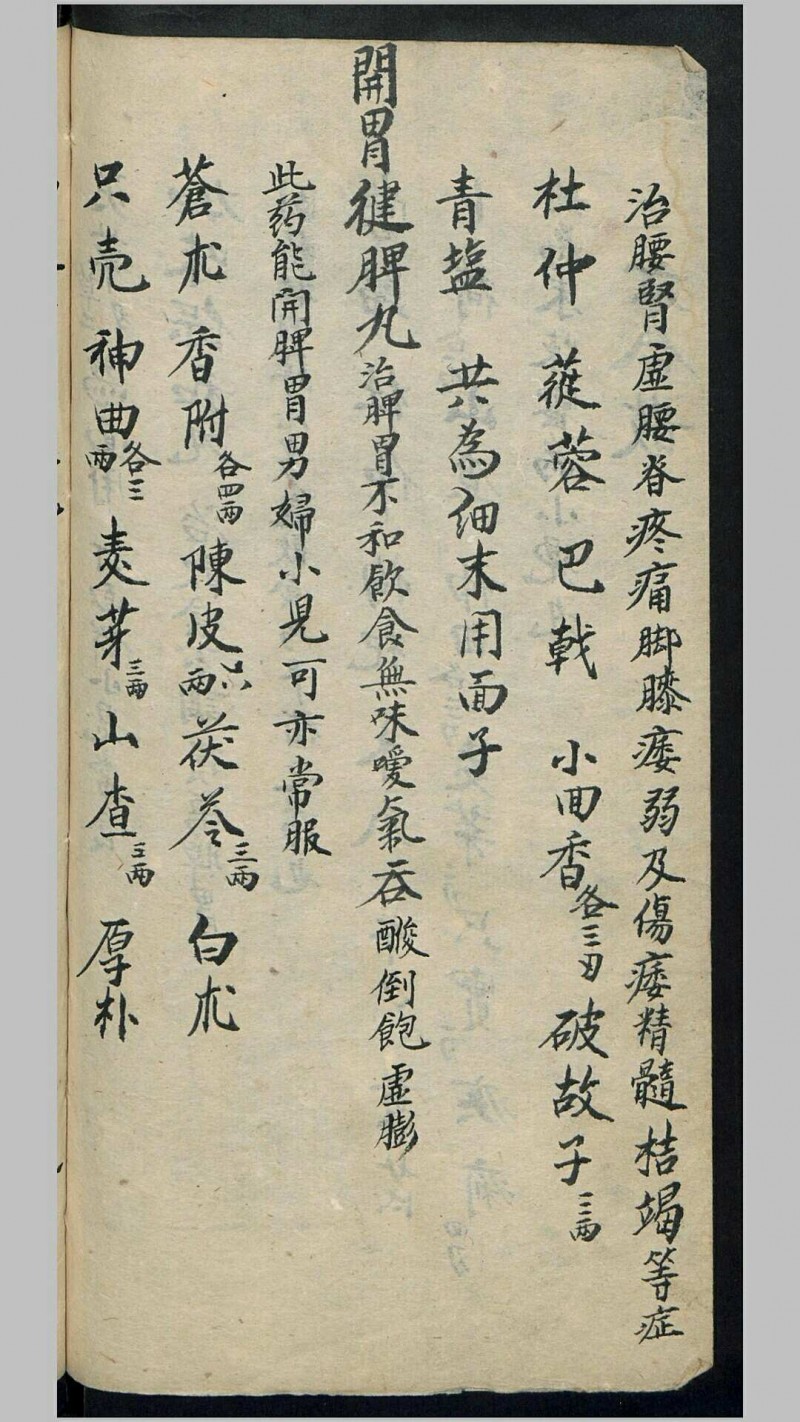 治腰腎虚腰脊疼痛脚膝痿弱及傷痿精髓桔竭等症
杜仲 蓯蓉 巴戟 小囬香各三 破故子三兩
青塩 共為細末用面子
開胃健脾丸治脾胃不和飲食無味噯氣吞酸倒飽虚膨
此药能開脾胃男婦小児可亦常服
蒼朮香附各四兩陳皮 兩茯苓三兩白朮
只壳神曲各三兩麦芽三兩山查三兩厚朴